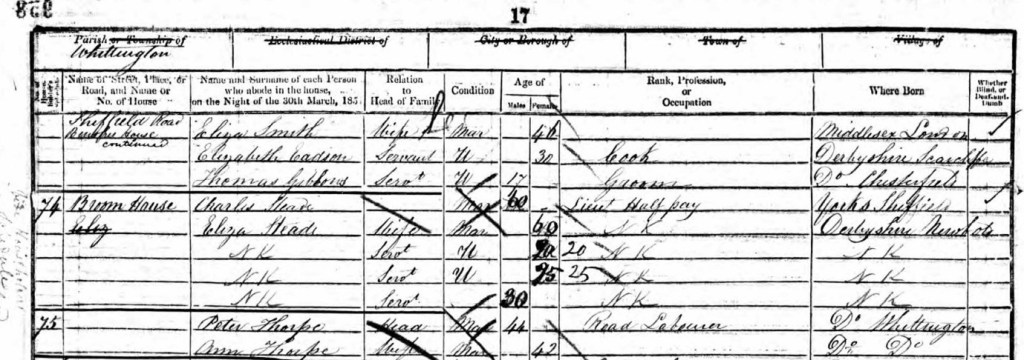 17
Parish or Township of Ecclesiastical District of City or Borough of Town of Village of
Whittington
Name of Street, Place, or Road, and Name or No. of House Name and Surname of each Person who abode in the house, on the Night of the 30th March, 185 Relation to Head of Family Condition Age of Males Females Rank, Profession, or Occupation Where Born Whether Blind, or Deaf-and-Dumb
Sheffield Road
house continued Eliza Smith Wife Mar 46 Middlesex London
Elizabeth Eadson Servant U 30 Cook Derbyshire Scarcliffe
Thomas Gibbons Servt U 17 Groom Do Chesterfield
74 Broom House Charles Steade Mar 60 Lieut Half pay Yorks Sheffield
Eliza Steade Wife Mar 60 N K Derbyshire
N K Servt U 20 20 N K N K
N K Servt U 25 25 N K N K
N K Servt 30 N K N K
75 Peter Thorpe Head Mar 44 Road Labourer Do Whittington
Ann Thorpe Wife Mar 42 Do Do